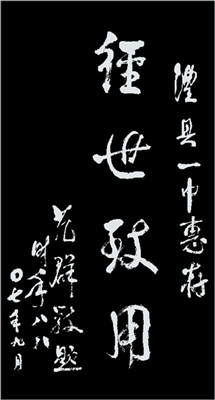 澧县一中惠存
經世致用
范群毅题
时年八八
〇七年九月